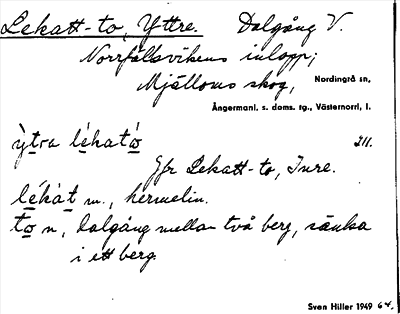 Lekatt-to, Yttre. Dalgång V.
Norrfällsvikens inlopp;
Mjälloms skog, Nordingrå sn,
Ångermanl. s. doms. tg., Västernorrl. l.
ỳtra lékatò̲ III.
Jfr Lekatt-to, Inre.
lékàt m., hermelin.
to̲ n, dalgång mellan två berg, sänka
i ett berg.
Sven Hiller 1949 64.